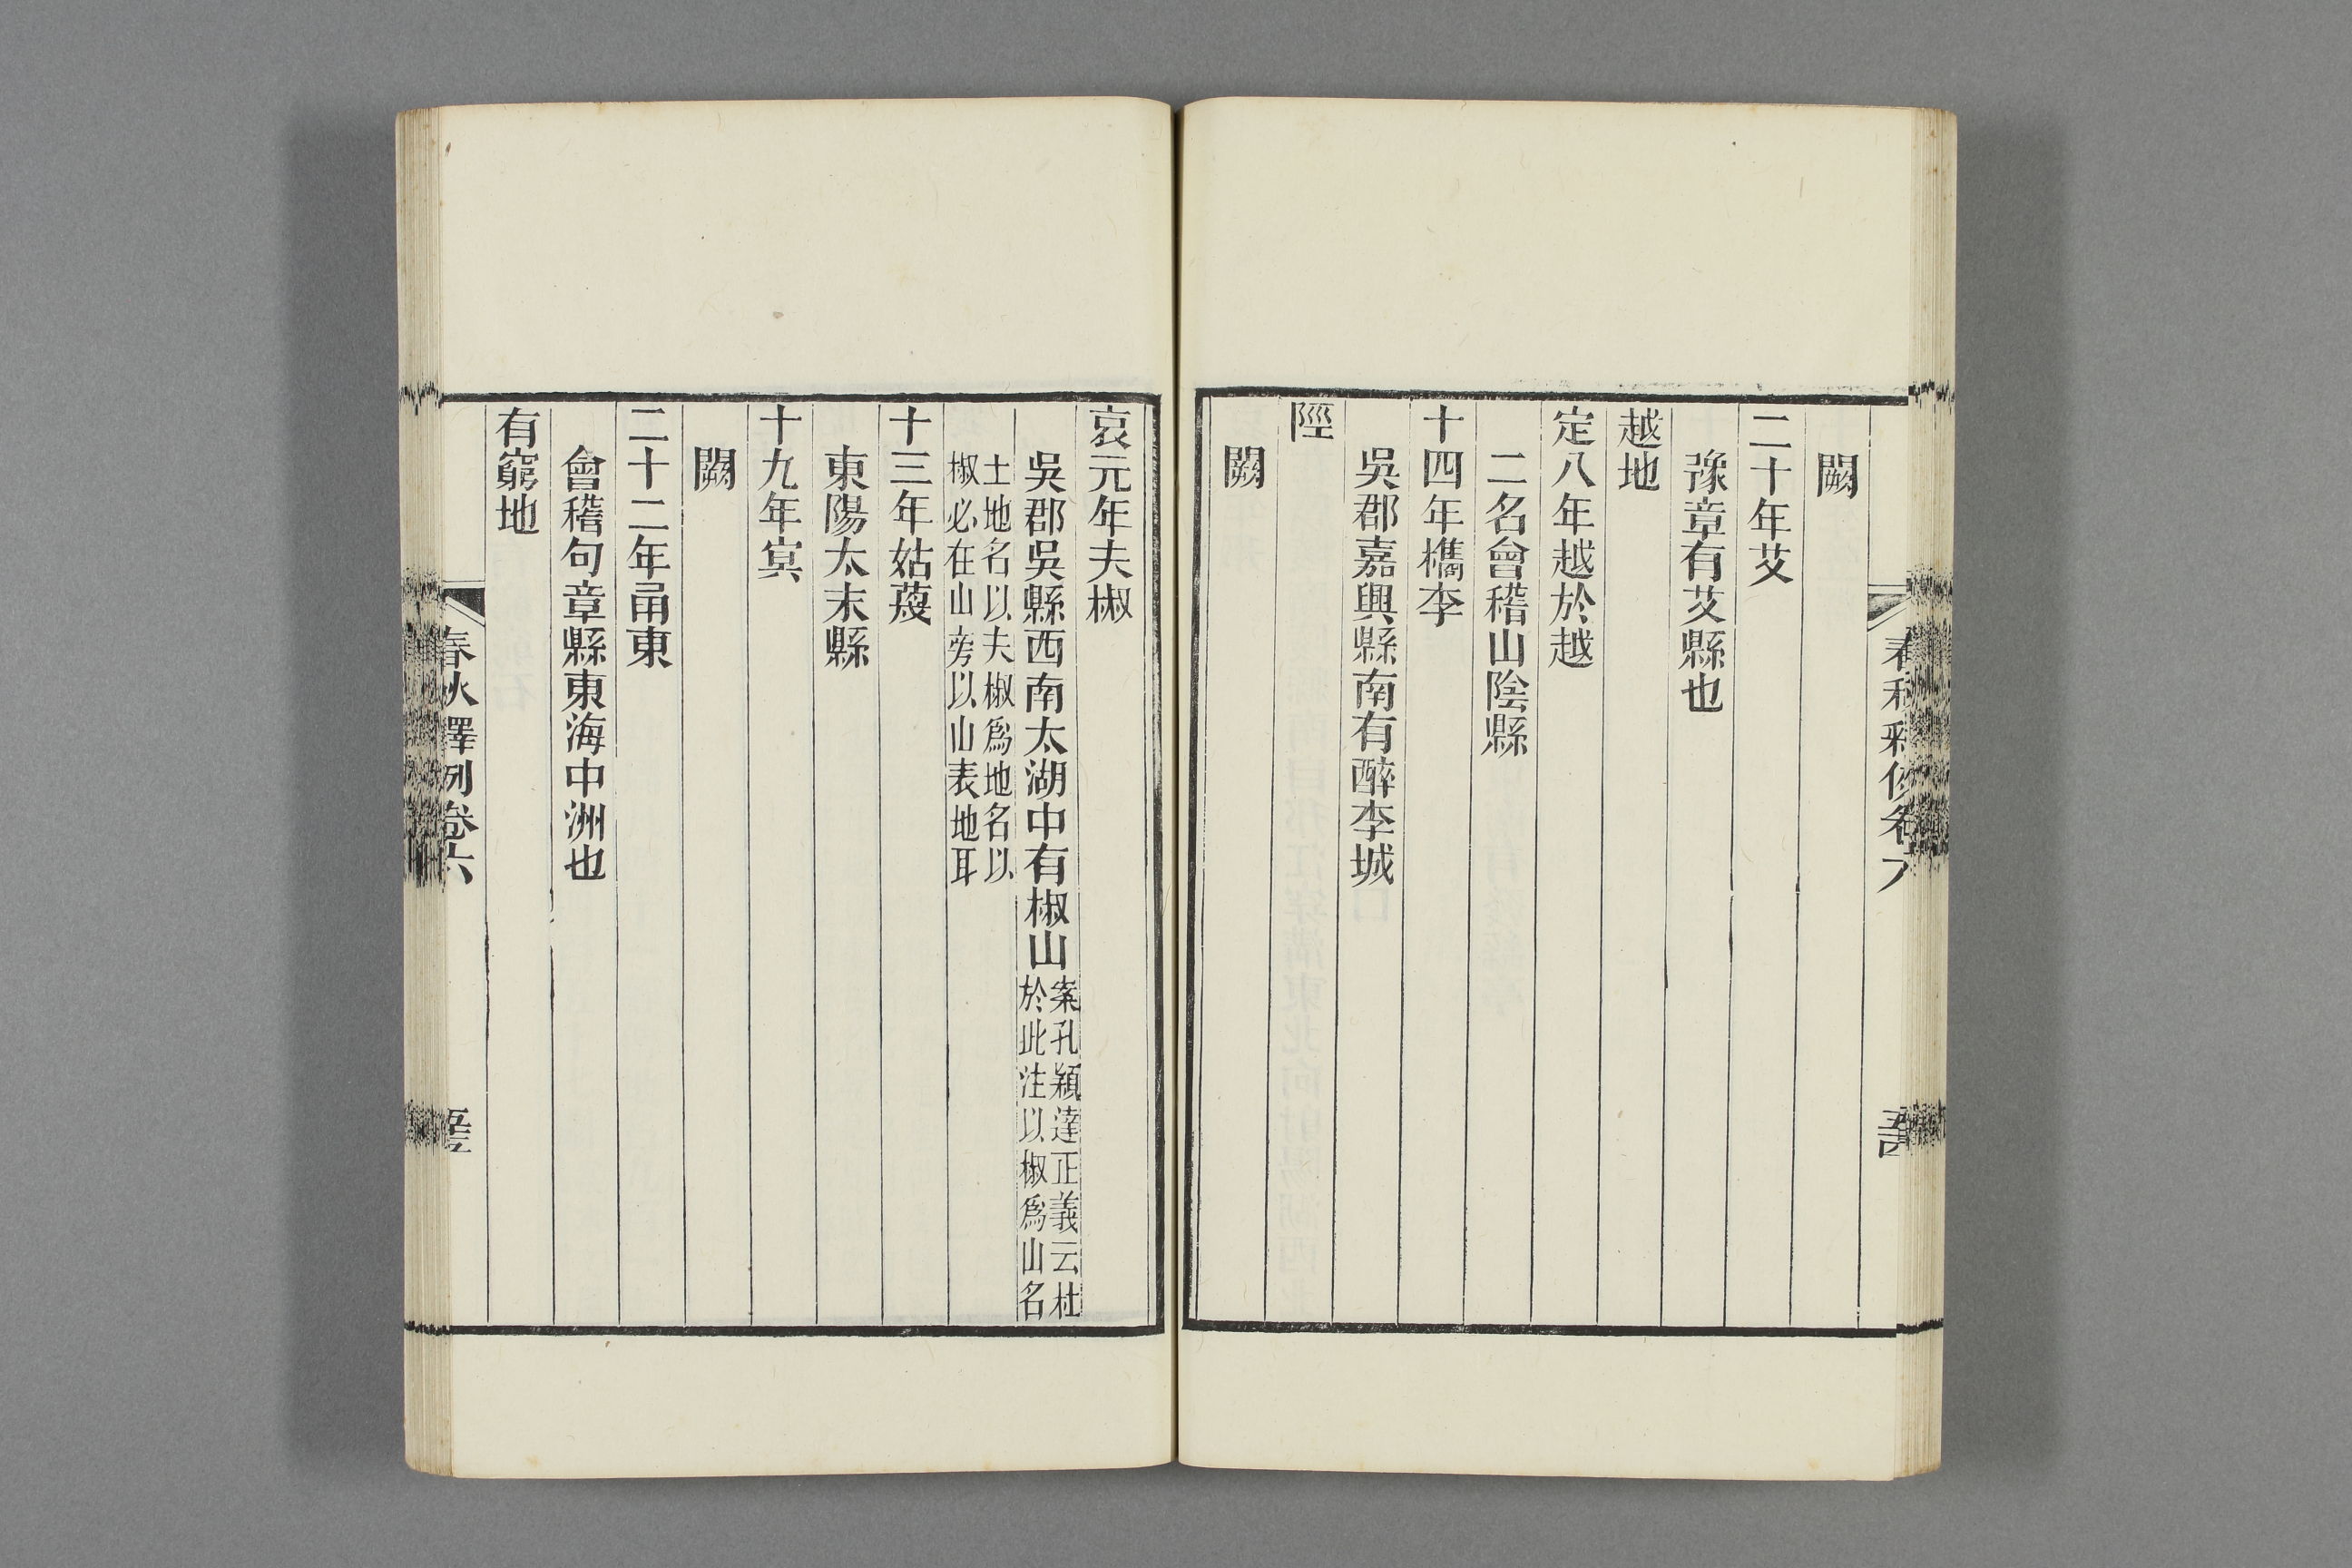 闕
二十年艾
豫章有艾縣也
越地
定八年越於越
二名會稽山陰縣
十四年檇李
吳郡嘉興縣南有醉李城
陘
闕
哀元年夫椒
吳郡吳縣西南太湖中有椒山案孔穎達正義云杜
於此注以椒爲山名
土地名以夫椒爲地名以
椒必在山旁以山表地耳
十三年姑蔑
東陽太末縣
十九年㝠
闕
二十二年甬東
會稽句章縣東海中洲也
有窮地
春秋釋例卷六